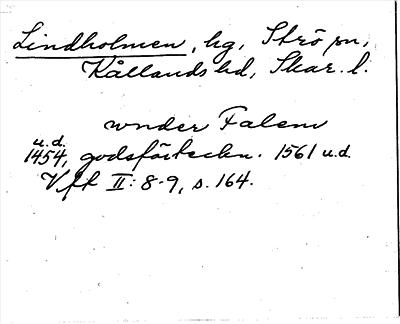 Lindholmen, hg, Strö sn,
Kållands hd, Skar. l.
wnder Falem
u.d.
1454, godsförteckn. 1561 u.d.
Vft II: 8-9, s. 164.